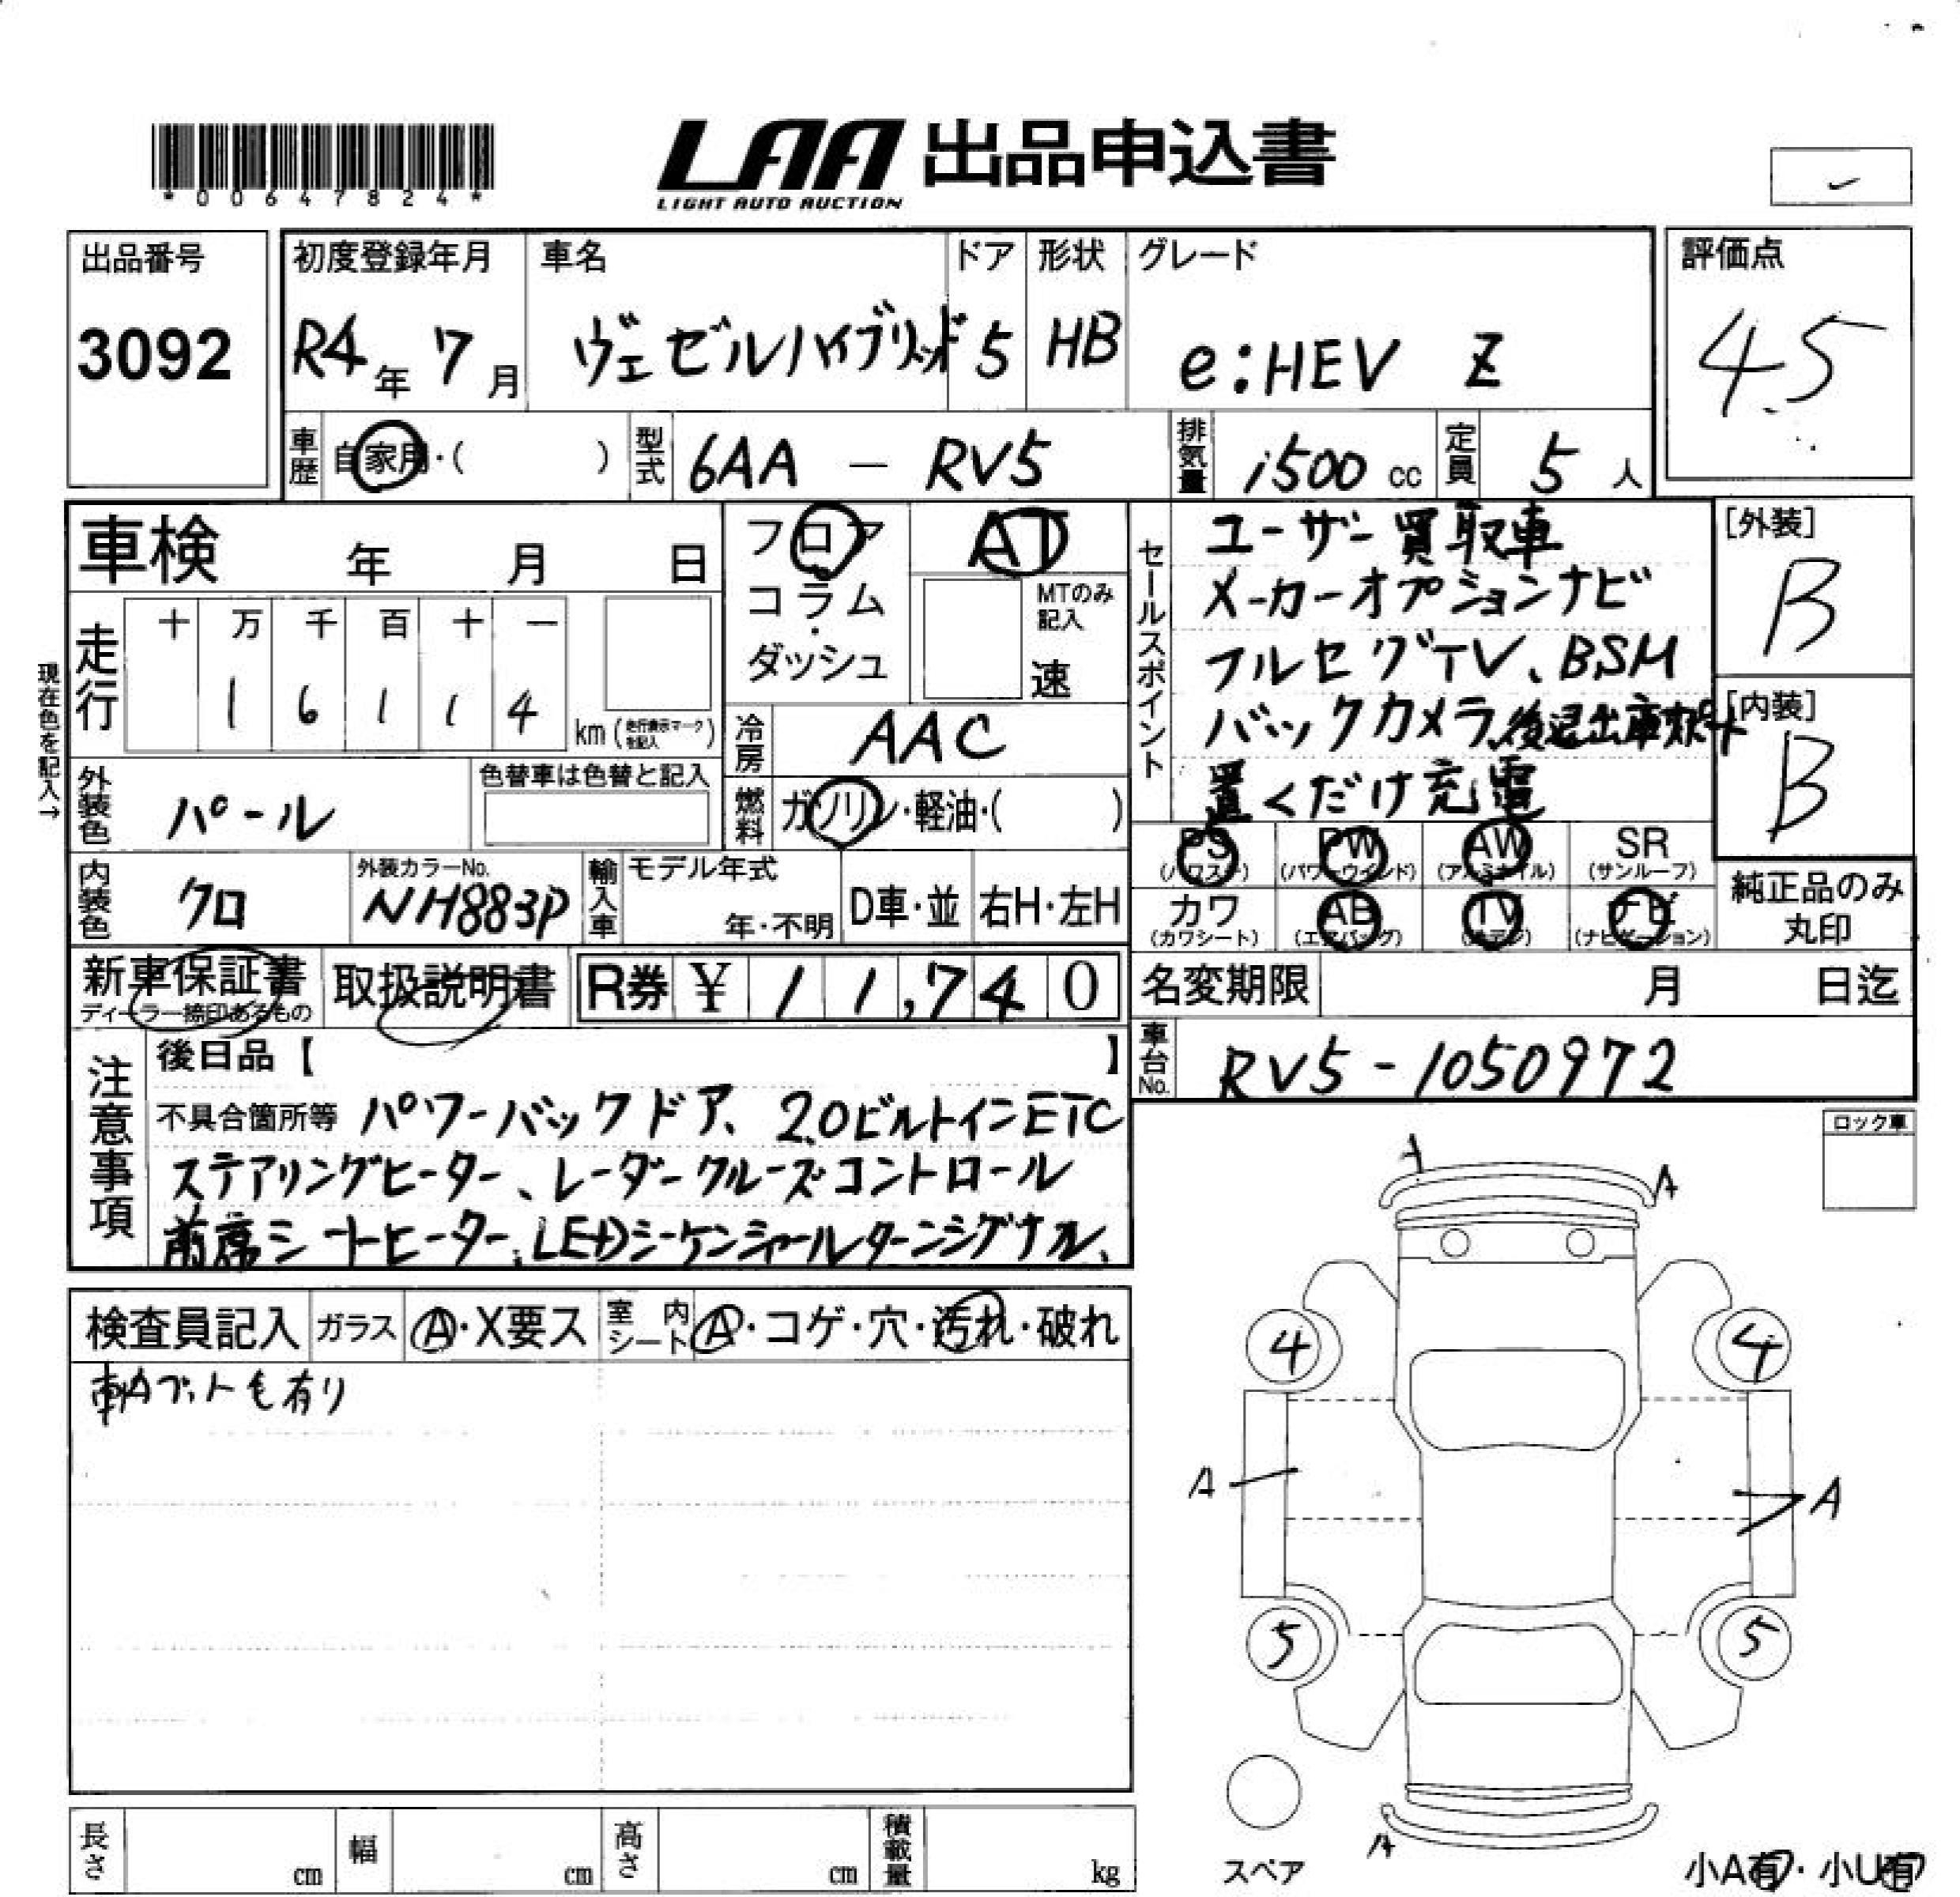 *00647824*
LAA 出品申込書
LIGHT AUTO AUCTION
出品番号
3092
初度登録年月
R4年 7月
車名
ヴェゼルハイブリッド
ドア
5
形状
HB
グレード
e:HEV Z
評価点
4.5
車歴 自家用・( )
型式 6AA - RV5
排気量 1500 cc
定員 5 人
車検 年 月 日
走行
十 万 千 百 十 一
1 6 1 1 4
km (走行表示マークを記入)
現在色を記入→
外装色 パール
色替車は色替と記入
内装色 クロ
外装カラーNo.
NH883P
輸入車
モデル年式
年・不明
D車・並
右H・左H
フロア
コラム
・
ダッシュ
AT
MTのみ記入
速
冷房 AAC
燃料 ガソリン・軽油・( )
セールスポイント
ユーザー買取車
メーカーオプションナビ
フルセグTV、BSM
バックカメラ、後退出庫サポート
置くだけ充電
[外装]
B
[内装]
B
PS (パワステ)
PW (パワーウインド)
AW (アルミホイル)
SR (サンルーフ)
カワ (カワシート)
AB (エアバッグ)
TV
ナビ (ナビゲーション)
純正品のみ丸印
新車保証書
ディーラー捺印あるもの
取扱説明書
R券 ¥ 11,740
名変期限 月 日迄
車台No. RV5-1050972
注意事項
後日品【 】
不具合箇所等 パワーバックドア、2.0ビルトインETC
ステアリングヒーター、レーダークルーズコントロール
前席シートヒーター、LEDシーケンシャルターンシグナル、
ロック車
検査員記入
ガラス A・X要ス
室内シート A・コゲ・穴・汚れ・破れ
有り
A
A
4
4
A
A
5
5
A
スペア
小A有・小U有
長さ cm
幅 cm
高さ cm
積載量 kg